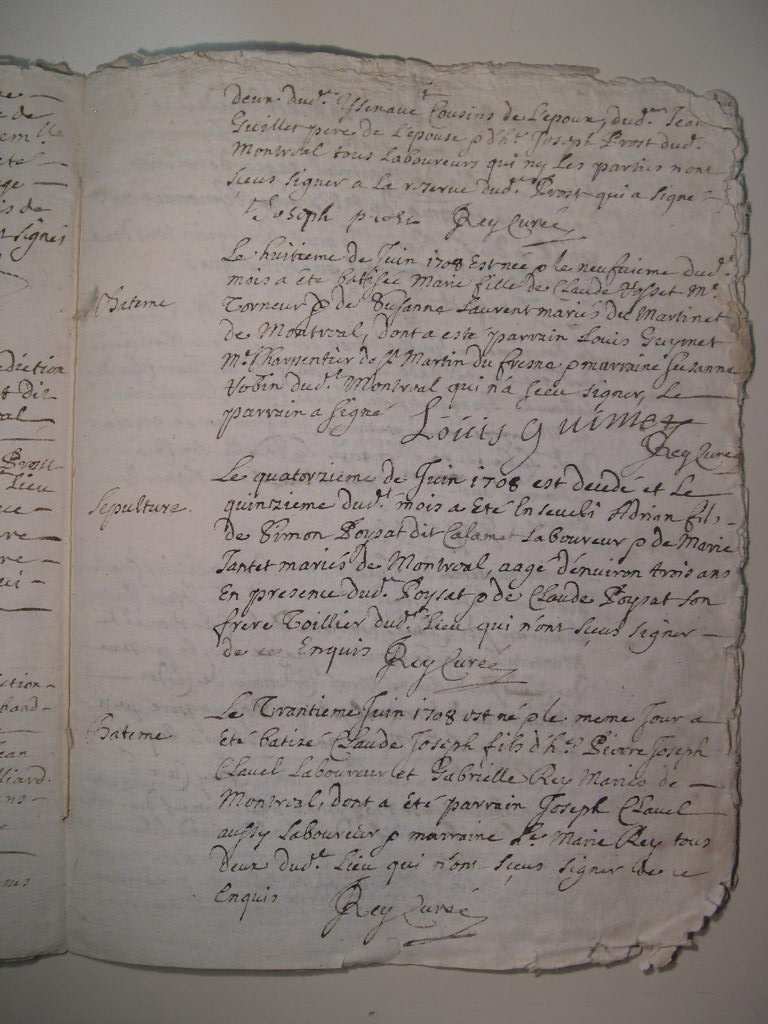 deux dud. Issenave Cousins de L'epoux, dud. Jean
Guillet pere de L'epouse p d h. Joseph Prost dud.
Montreal tous Laboureurs qui ny Les parties n'ont
sceus signer a La reserve dud. Prost qui a signe
Joseph prost Rey Curé
Bateme
Le huitieme de Juin 1708 Est née p le neufuieme dud.
mois a été battisée Marie fille de Claude M.
Torneur p de Susanne Laurent mariés du Martinet
de Montreal, dont a esté parrain Louis Guymet
M. Charpentier de S. Martin du fresne p marraine Susanne
Gobin dud. Montreal qui n'a sceu signer, Le
parrain a signé Louis guimet
Rey Curé
Sepulture
Le quatorzieme de Juin 1708 est decedé et Le
quinzieme dud. mois a eté Enseveli Adrian fils
de Simon Poysat dit Calamet Laboureur p de Marie
Tantet mariés de Montreal, aagé d'environ trois ans
En presence dud. Poysat p de Claude Poysat son
frere Toillier dud. Lieu qui n'ont sceus signer
de ce Enquis Rey Curé
Bateme
Le Trantieme Juin 1708 est né p le meme Jour a
eté batizé Claude Joseph fils d h. Pierre Joseph
Clavel Laboureur et Gabrielle Rey Mariés de
Montreal, dont a été parrain Joseph Clavel
aussy Laboureur p marraine Marie Rey tous
deux dud. Lieu qui n'ont sceus signer de ce
Enquis Rey Curé